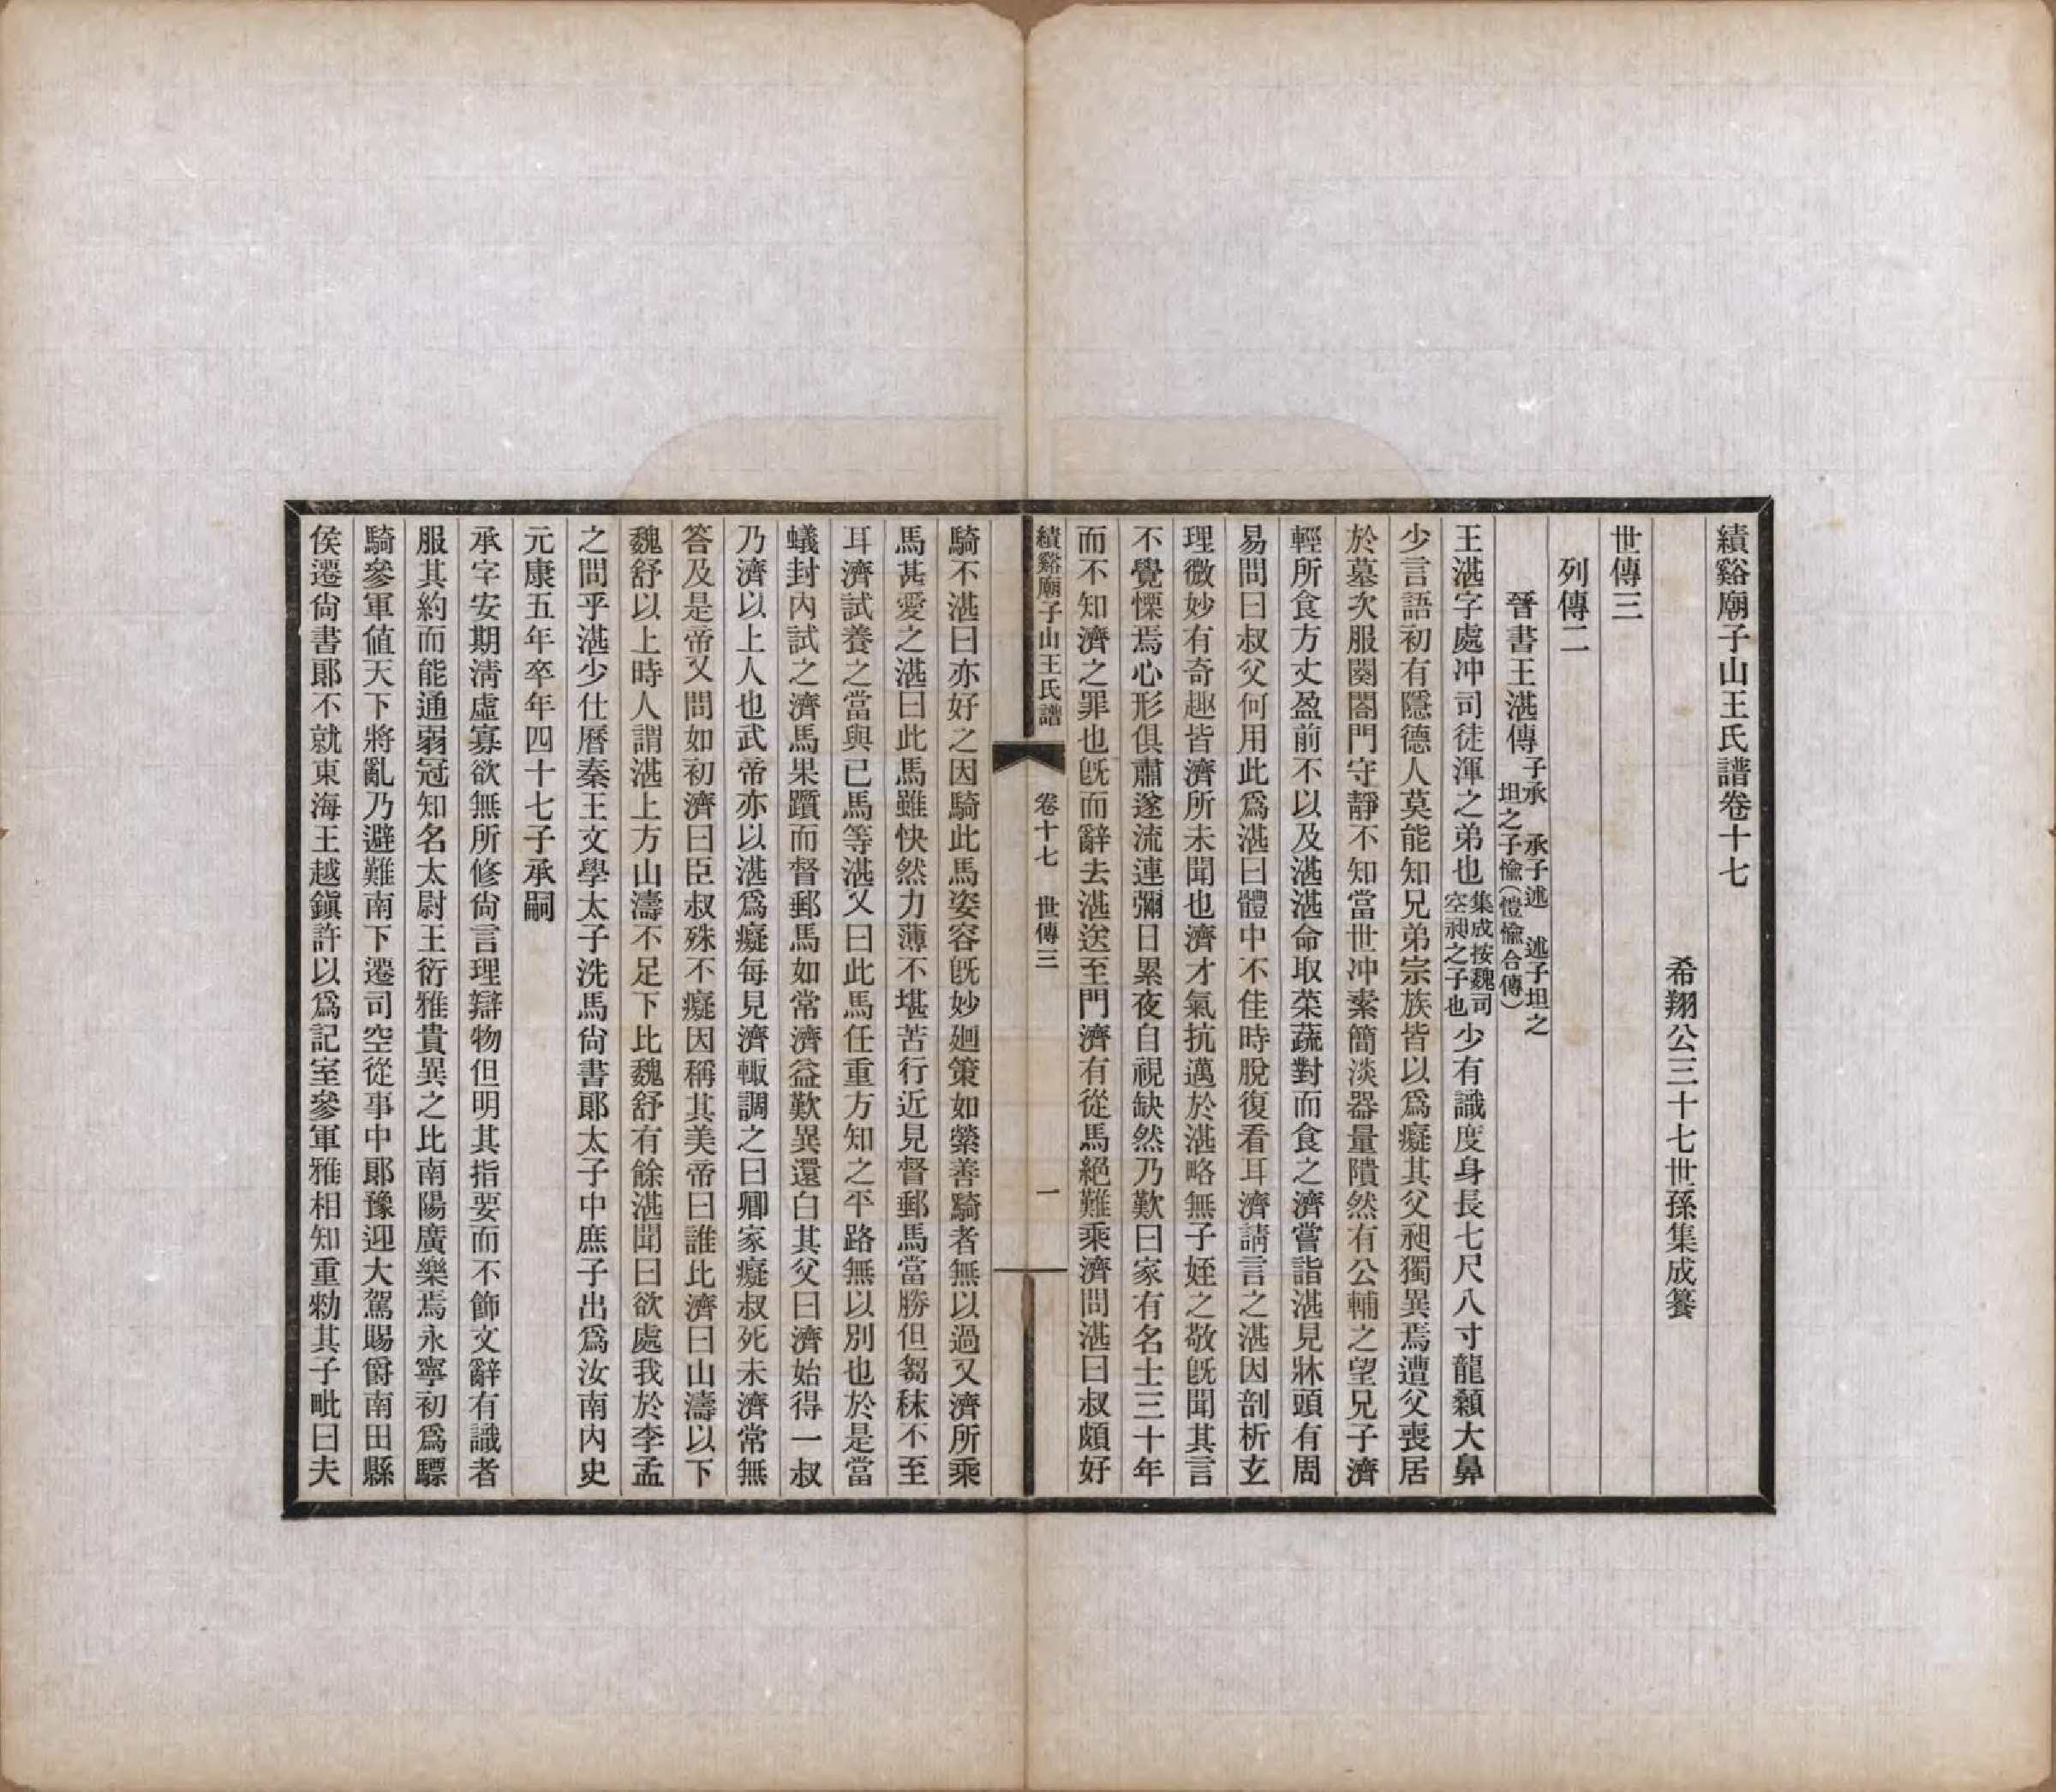 績谿廟子山王氏譜卷十七
希翔公三十七世孫集成纂
世傳三
列傳二
晉書王湛傳 子承　承子述　述子坦之 坦之子愉（愷愉合傳）
王湛字處冲司徒渾之弟也 集成按魏司空昶之子也 少有識度身長七尺八寸龍顙大鼻
少言語初有隱德人莫能知兄弟宗族皆以爲癡其父昶獨異焉遭父喪居
於墓次服闋闔門守靜不知當世冲素簡淡器量隤然有公輔之望兄子濟
輕所食方丈盈前不以及湛湛命取菜蔬對而食之濟嘗詣湛見牀頭有周
易問曰叔父何用此爲湛曰體中不佳時脫復看耳濟請言之湛因剖析玄
理微妙有奇趣皆濟所未聞也濟才氣抗邁於湛略無子姪之敬旣聞其言
不覺慄焉心形俱肅遂流連彌日累夜自視缺然乃歎曰家有名士三十年
而不知濟之罪也旣而辭去湛送至門濟有從馬絕難乘濟問湛曰叔頗好
績谿廟子山王氏譜　卷十七　世傳三　一
騎不湛曰亦好之因騎此馬姿容旣妙廻策如縈善騎者無以過又濟所乘
馬甚愛之湛曰此馬雖快然力薄不堪苦行近見督郵馬當勝但芻秣不至
耳濟試養之當與已馬等湛又曰此馬任重方知之平路無以別也於是當
蟻封內試之濟馬果躓而督郵馬如常濟益歎異還白其父曰濟始得一叔
乃濟以上人也武帝亦以湛爲癡每見濟輙調之曰卿家癡叔死未濟常無
答及是帝又問如初濟曰臣叔殊不癡因稱其美帝曰誰比濟曰山濤以下
魏舒以上時人謂湛上方山濤不足下比魏舒有餘湛聞曰欲處我於李孟
之間乎湛少仕曆秦王文學太子洗馬尙書郞太子中庶子出爲汝南內史
元康五年卒年四十七子承嗣
承字安期淸虛寡欲無所修尙言理辯物但明其指要而不飾文辭有識者
服其約而能通弱冠知名太尉王衍雅貴異之比南陽廣樂焉永寧初爲驃
騎參軍値天下將亂乃避難南下遷司空從事中郞豫迎大駕賜爵南田縣
侯遷尙書郞不就東海王越鎭許以爲記室參軍雅相知重勑其子毗曰夫